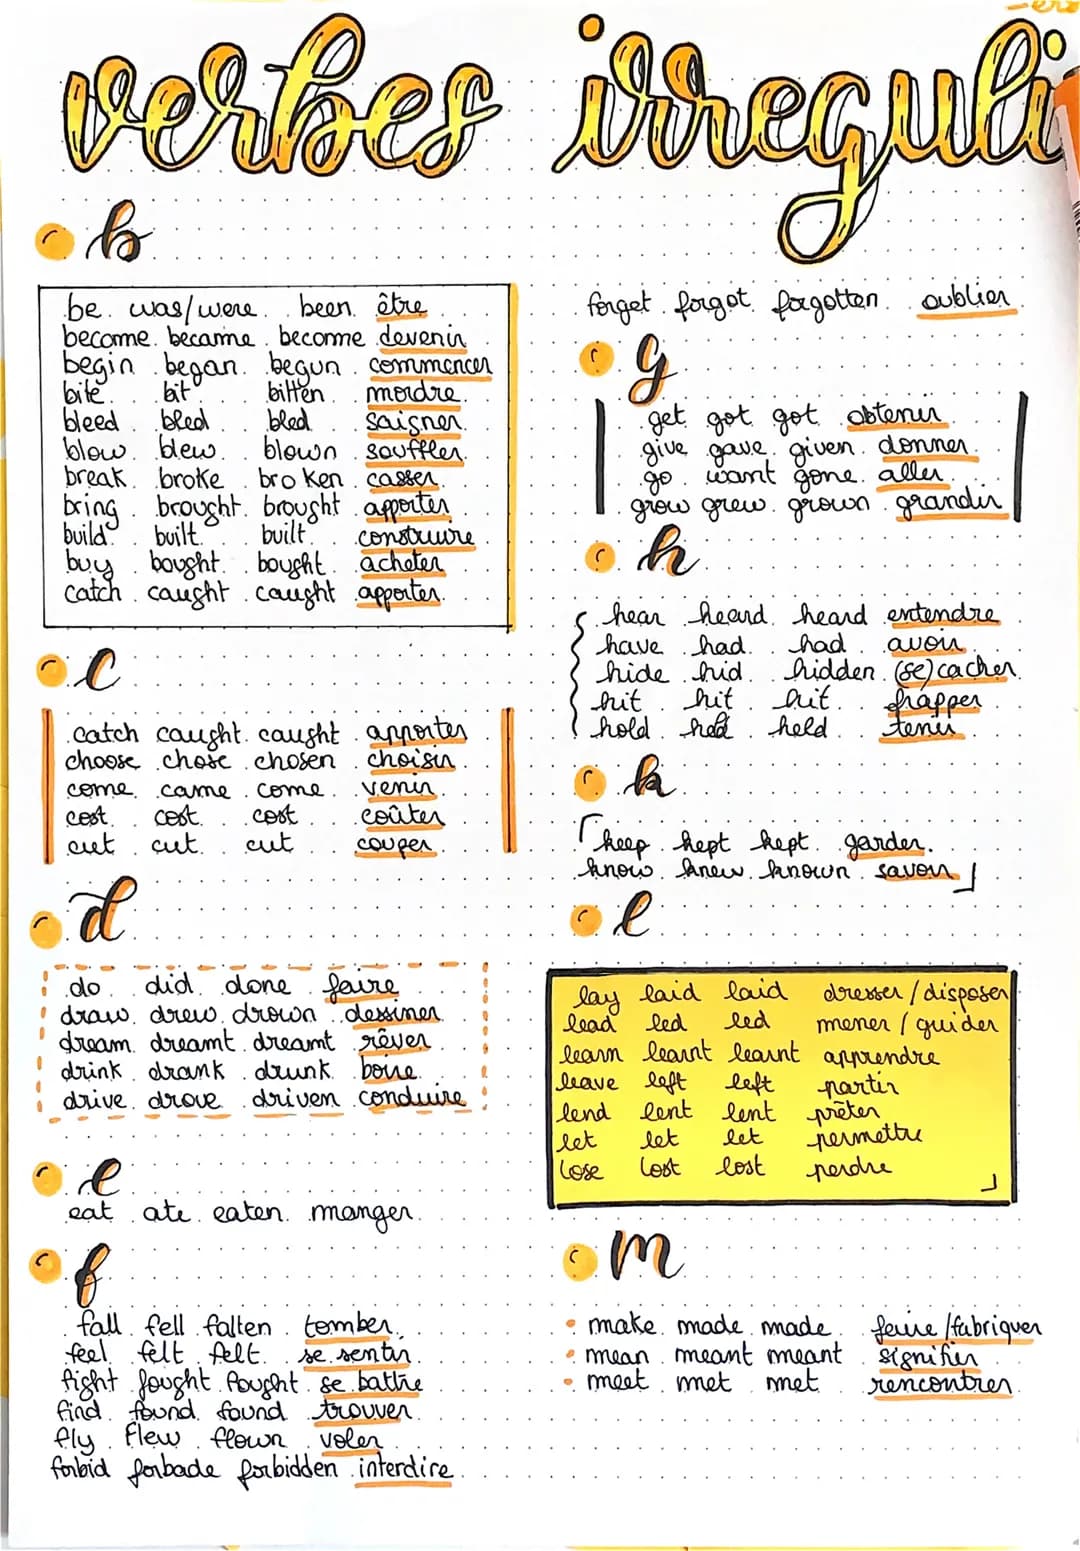 verbes irréguli
b
be was/were been être
become became become devenir
begin began begun commencer
bite bit bitten mordre
bleed bled bled saigner
blow blew blown souffler
break broke broken casser
bring brought brought apporter
build built built construire
buy bought bought acheter
catch caught caught apporter
c
catch caught caught apporter
choose chose chosen choisir
come came come venir
cost cost cost coûter
cut cut cut couper
d
do did done faire
draw drew drown dessiner
dream dreamt dreamt rêver
drink drank drunk boire
drive drove driven conduire
e
eat ate eaten manger
f
fall fell falten tomber
feel felt felt se sentir
fight fought fought se battre
find found found trouver
fly flew flown voler
forbid forbade forbidden interdire
forget forgot forgotten oublier
g
get got got obtenir
give gave given donner
go want gone aller
grow grew grown grandir
h
hear heard heard entendre
have had had avoir
hide hid hidden (se) cacher
hit hit hit frapper
hold held held tenir
k
keep kept kept garder
know knew known savoir
l
lay laid laid dresser / disposer
lead led led mener / guider
learn learnt learnt apprendre
leave left left partir
lend lent lent prêter
let let let permettre
lose lost lost perdre
m
make made made faire / fabriquer
mean meant meant signifier
meet met met rencontrer